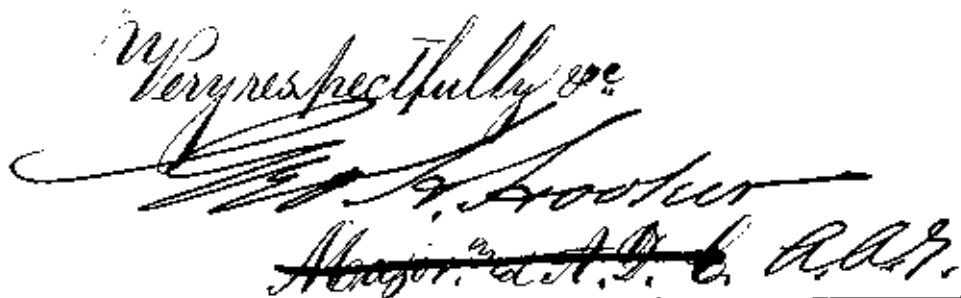 Very respectfully &c
Geo. G. Hooker
Major & A.D.C. A.A.G.